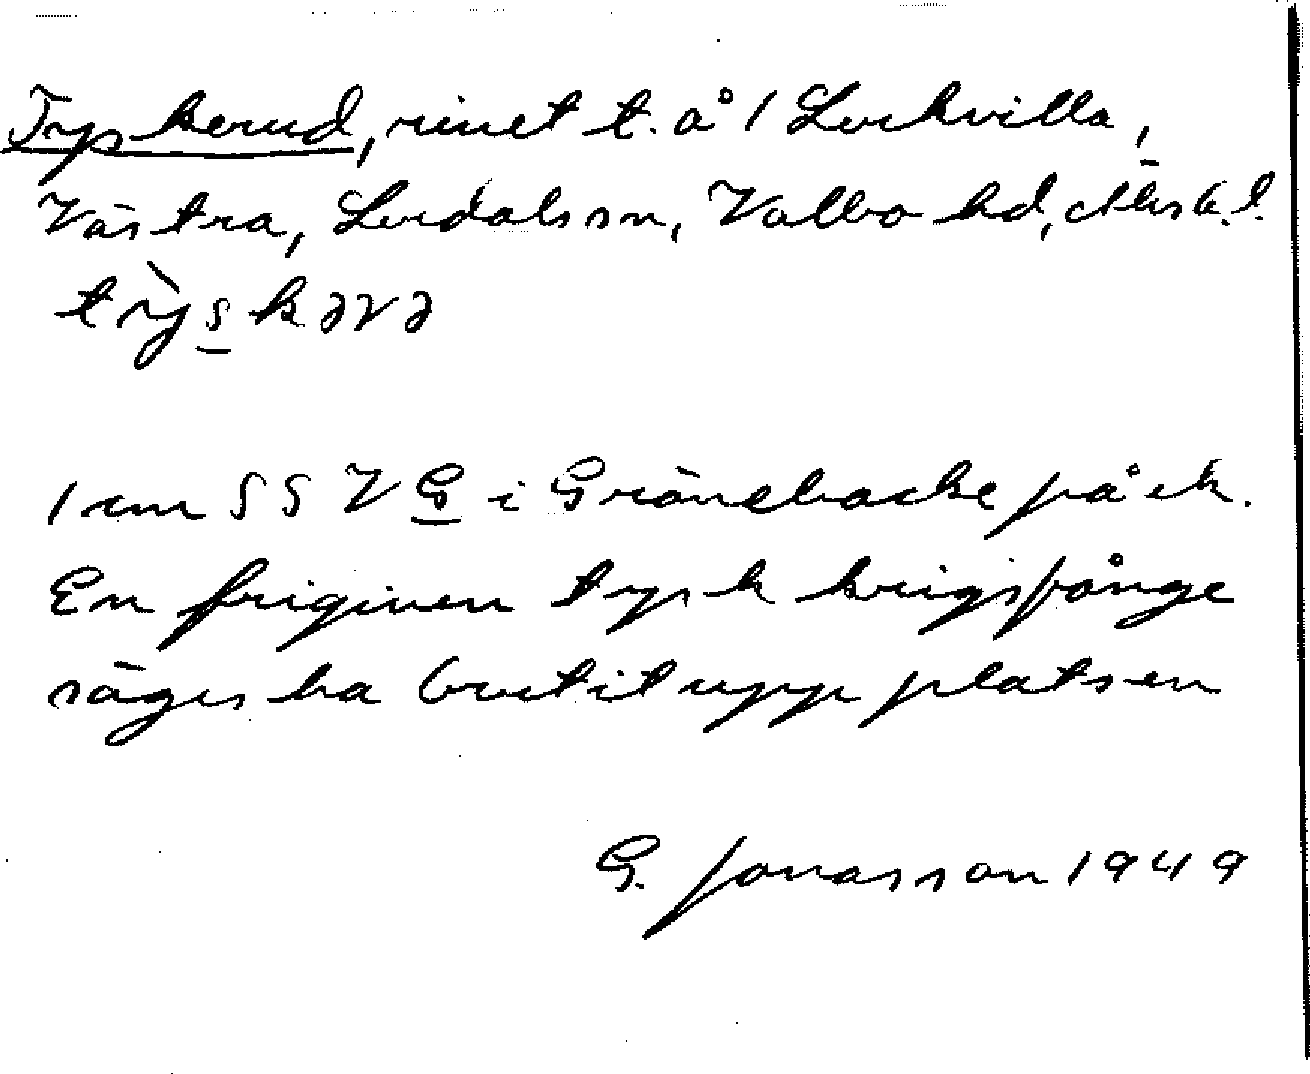 Tyskerud, rivet t. å 1 Lockvilla,
Västra, Lerdals sn, Valbo hd, Älvsb. l.
tỳskərə
1 cm SSV G i Grönebacke på ek.
En frigiven tysk krigsfånge
säges ha brutit upp platsen
G. Jonasson 1949